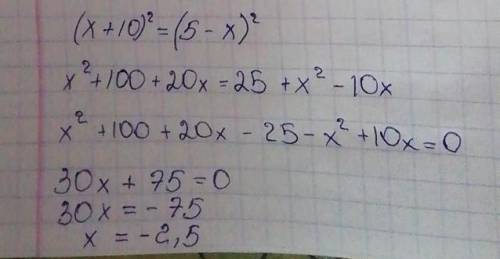 (x+10)²=(5-x)²
x²+100+20x=25+x²-10x
x²+100+20x-25-x²+10x=0
30x+75=0
30x=-75
x=-2,5